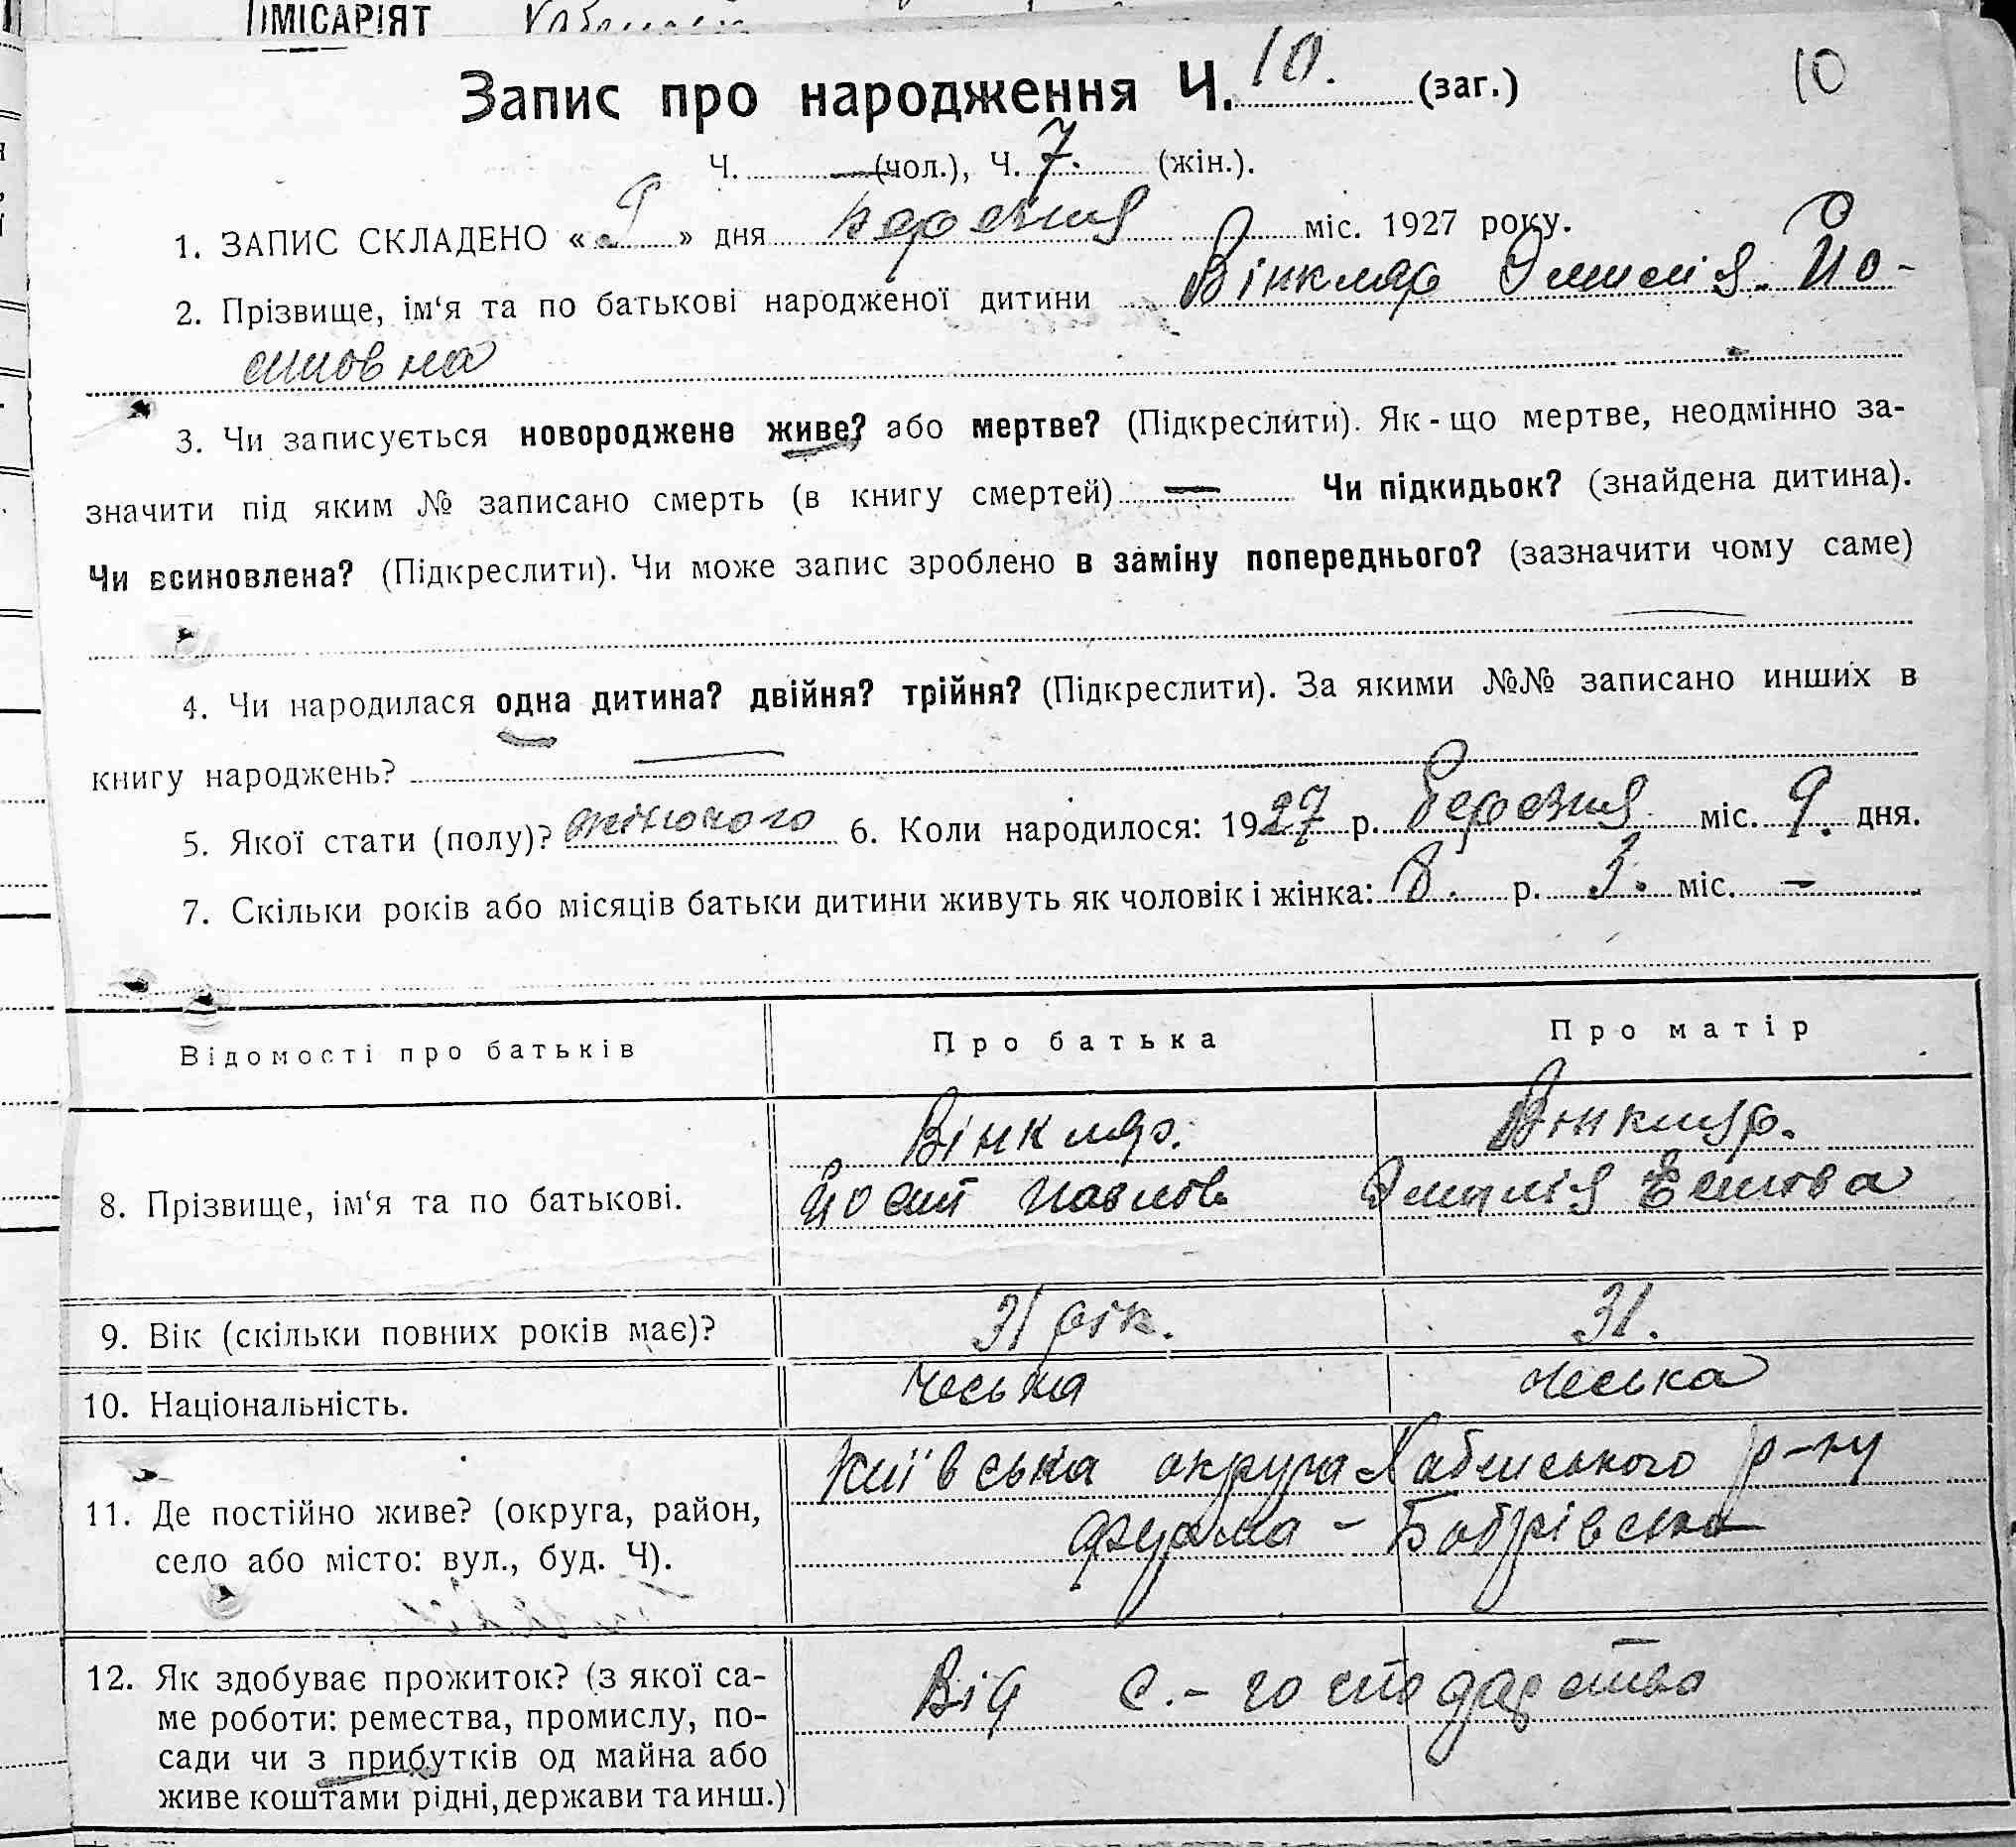 ОМІСАРІЯТ
Запис про народження Ч. 10. (заг.) 10
Ч. — (чол.), Ч. 7. (жін.).
1. ЗАПИС СКЛАДЕНО « 9 » дня березня міс. 1927 року.
2. Прізвище, ім‘я та по батькові народженої дитини Вінкляр Эмилія Йо-
сиповна
3. Чи записується новороджене живе? або мертве? (Підкреслити). Як-що мертве, неодмінно за-
значити під яким № записано смерть (в книгу смертей) — Чи підкидьок? (знайдена дитина).
Чи всиновлена? (Підкреслити). Чи може запис зроблено в заміну попереднього? (зазначити чому саме)
4. Чи народилася одна дитина? двійня? трійня? (Підкреслити). За якими №№ записано инших в
книгу народжень? —
5. Якої стати (полу)? жіночого 6. Коли народилося: 1927 р. березня міс. 9. дня.
7. Скільки років або місяців батьки дитини живуть як чоловік і жінка: 8. р. 3. міс. —
Відомості про батьків Про батька Про матір
Вінкляр. Винкляр.
8. Прізвище, ім‘я та по батькові. Йосип Павлов. Эмилія
9. Вік (скільки повних років має)? 31 рік. 31.
10. Національність. Чеська чеська
Київська округа Хабенського р-ну
11. Де постійно живе? (округа, район,
село або місто: вул., буд. Ч).
12. Як здобуває прожиток? (з якої са-
ме роботи: ремества, промислу, по-
сади чи з прибутків од майна або
живе коштами рідні, держави та инш.)
Від с.-господарства